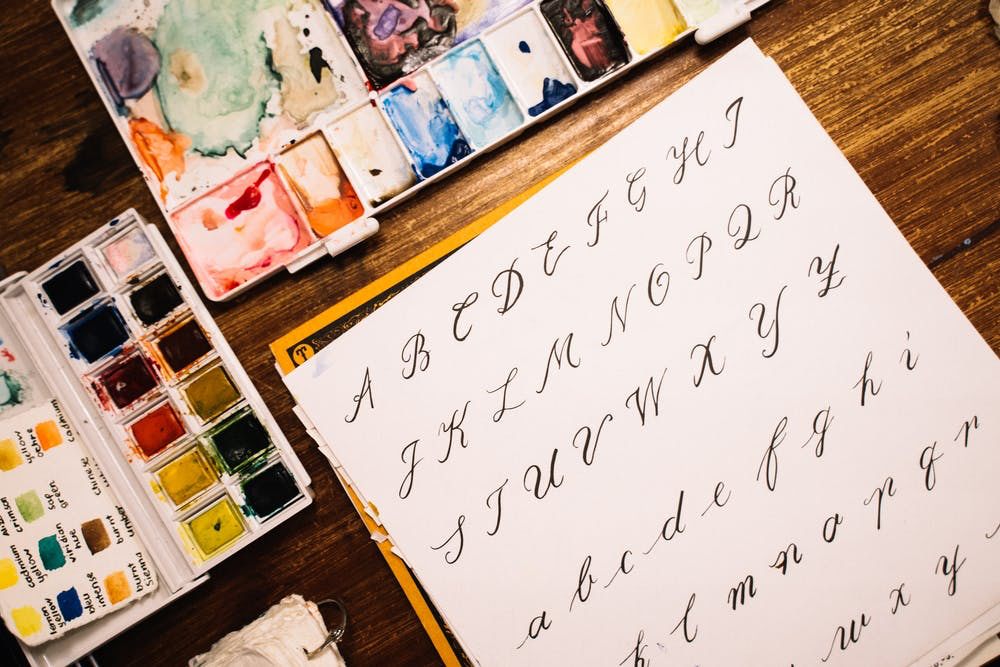 A B C D E F G H I
J K L M N O P Q R
S T U V W X Y Z
a b c d e f g h i
k l m n o p q r
w x y
T
cadmium
yellow ochre
Chinese
sap green
crimson
umber
burnt
viridian hue
cadmium yellow
Sienna
burnt
intense blue
lemon yellow